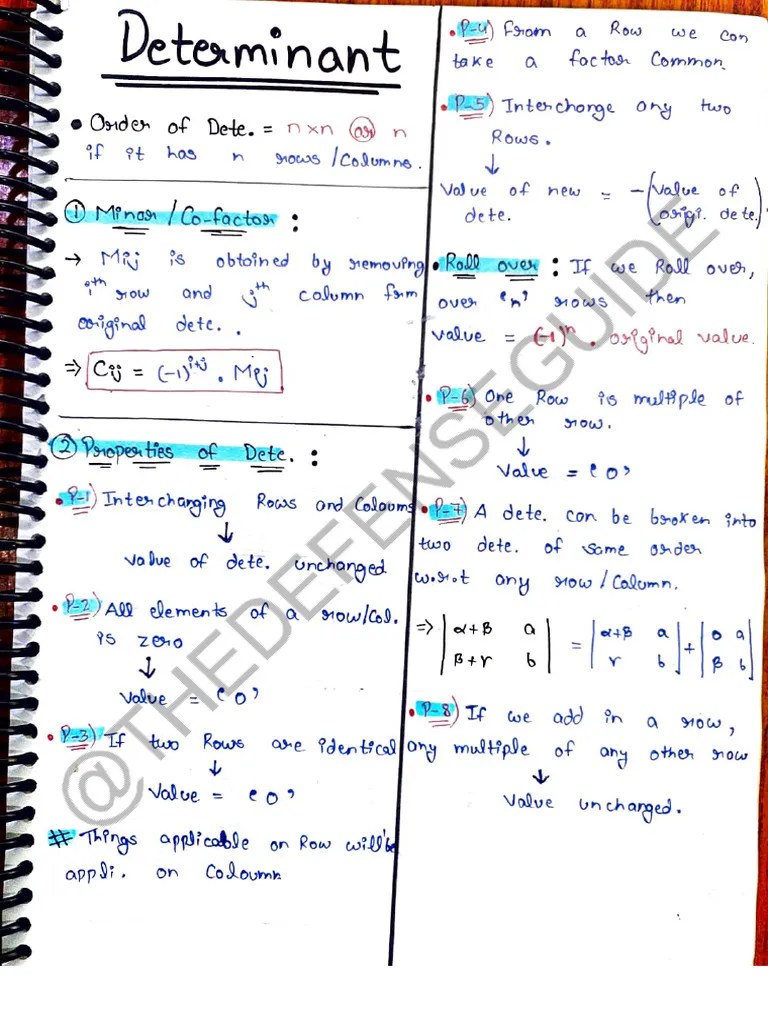 Determinant
• Order of Dete. = n×n (or) n
if it has n rows/Columns.
① Minor/Co-factor :
→ Mij is obtained by removing
ith row and jth column from
original dete..
⇒ Cij = (-1)^i+j . Mij
② Properties of Dete. :
• P-1) Interchanging Rows and Coloums
↓
Value of dete. unchanged
• P-2) All elements of a row/Col.
is zero
↓
Value = '0'
• P-3) If two Rows are identical
↓
Value = '0'
# Things applicable on Row will be
appli. on Coloumn
• P-4) From a Row we can
take a factor Common.
• P-5) Interchange any two
Rows.
↓
Value of new dete. = -(Value of origi. dete.)
• Roll over : If we Roll over,
over 'n' rows then
value = (-1)^n . original value.
• P-6) One Row is multiple of
other row.
↓
Value = '0'
• P-7) A dete. can be broken into
two dete. of same order
w.r.t any row/Column.
⇒ |α+β a| = |α+β a| + |0 a|
|β+r b| |r b| |β b|
• P-8) If we add in a row,
any multiple of any other row
↓
Value unchanged.
@THEDEFENSEGUIDE